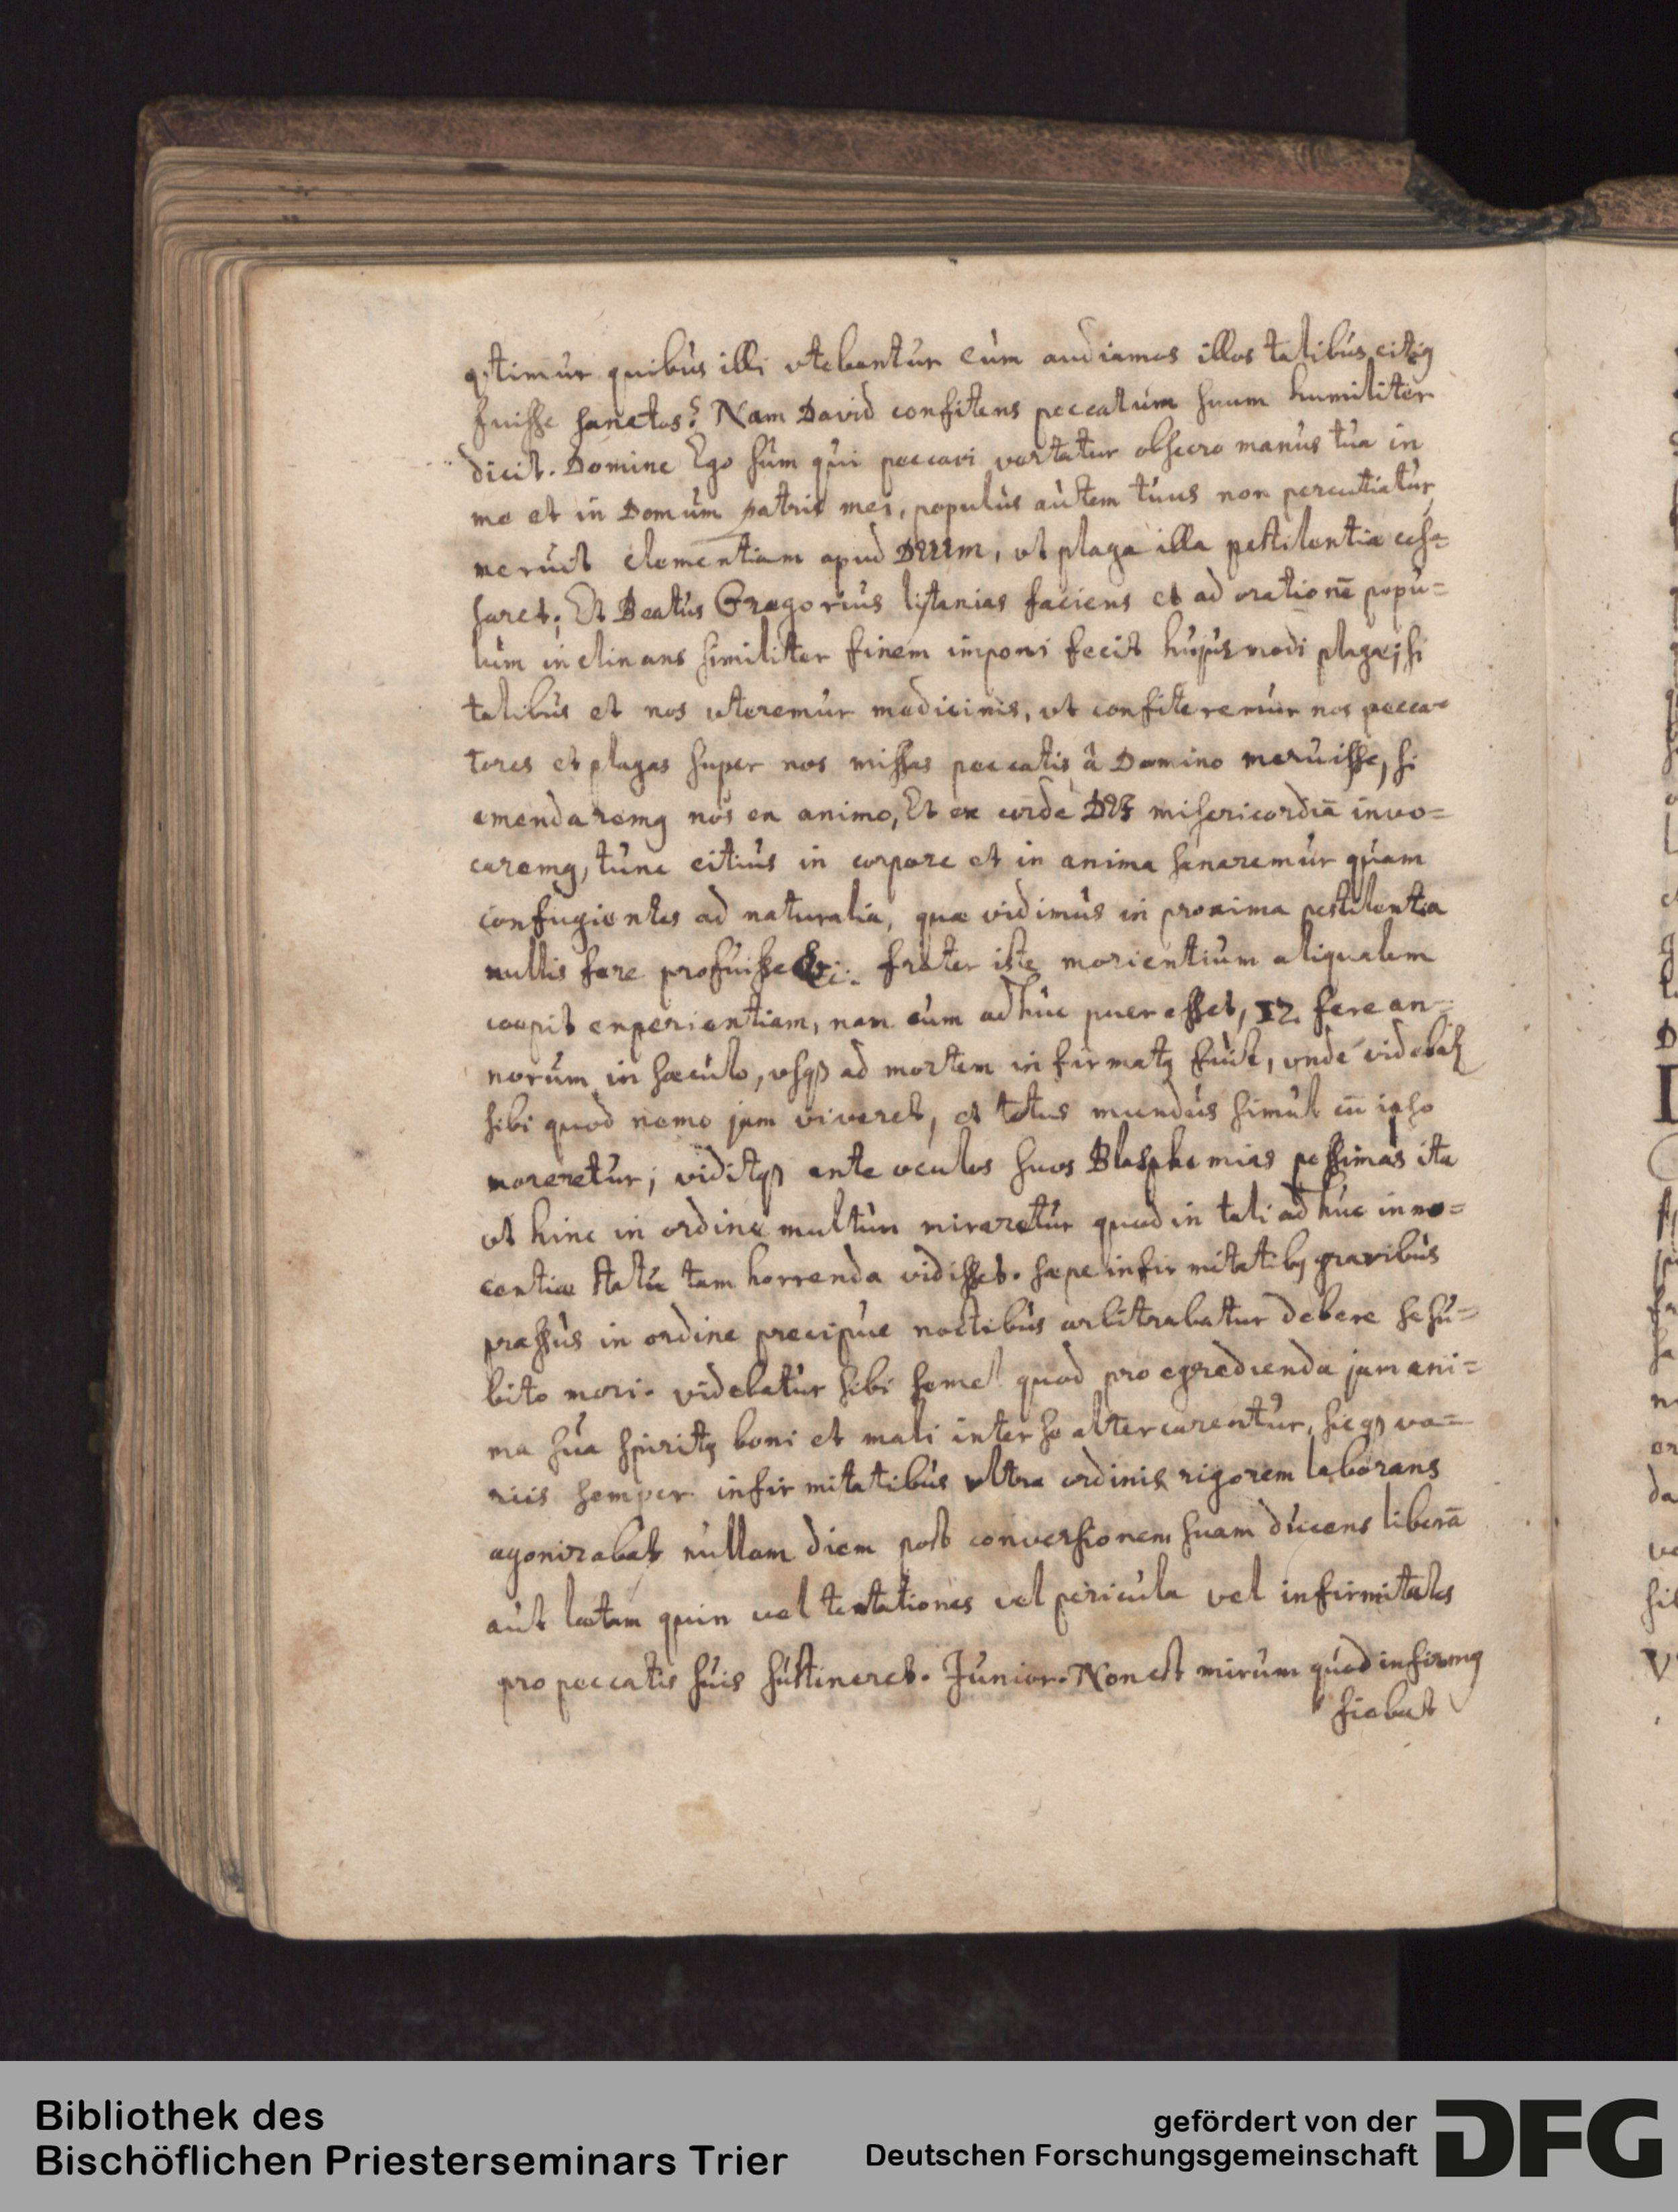 q;timur quibus illi vtebantur cum audiamus illos talibus citig
fuisse sanctos? Nam David confitens peccatum suum humiliter
dicit. Domine Ego sum qui peccavi vertatur obsecro manus tua in
me et in Domum patris mei, populus autem tuus non percutiatur
meruit clementiam apud DEUM, ut plaga illa pestilentiæ ces=
saret; Et Beatus Gregorius lytanias faciens et ad orationē popu=
lum inclinans similiter finem imponi fecit hujusmodi plagæ; si
talibus et nos uteremur medicinis, ut confiteremur nos pecca=
tores et plagas super nos missas peccatis à Domino meruisse, si
emendaremg nos ex animo, Et ex corde DEI misericordiā invo=
caremg, tunc citius in corpore et in anima sanaremur quam
confugientes ad naturalia, quæ vidimus in proxima pestilentia
nullis fere profuisse &c: frater iste morientium aliqualem
coepit experientiam, nam cum adhuc puer esset, 12. fere an=
norum in sæculo, vsq3 ad mortem infirmatg fuit, vnde videbat
sibi quod nemo jam viveret, et totus mundus simul cū ipso
moreretur; viditq3 ante oculos suos Blasphemias pessimas ita
ut hinc in ordine multum miraretur quod in tali adhuc inno=
centiæ statu tam horrenda vidisset. sæpe infirmitatibg gravibus
pressus in ordine precipue noctibus arbitrabatur debere se su=
bito mori. videbatur sibi semel quod pro egredienda jam ani=
ma sua spiritg boni et mali inter se altercarentur, sicq3 va=
riis semper infirmitatibus ultra ordinis rigorem laborans
agonizabat nullam diem post conversionem suam ducens liberā
aut lætam quin vel tentationes vel pericula vel infirmitates
pro peccatis suis sustineret. Junior. Non est mirum quod infirmg
fiebat
Bibliothek des
Bischöflichen Priesterseminars Trier
gefördert von der
Deutschen Forschungsgemeinschaft
DFG